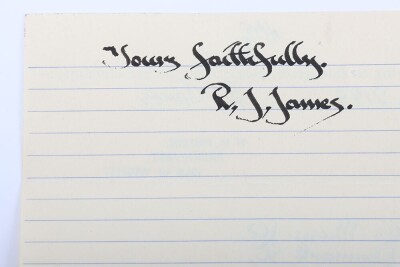 Yours faithfully.
R. J. James.